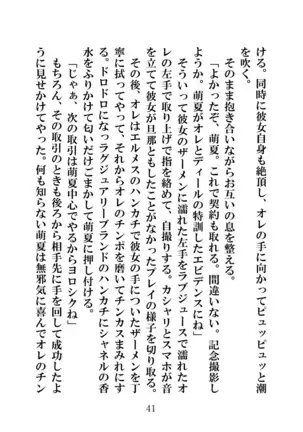 ける。同時に彼女自身も絶頂し、オレの手に向かってピュッピュッと潮
を吹く。
そのまま抱き合いながらお互いの息を整える。
「よかったぞ、萌夏。これで契約も取れる。間違いない。記念撮影し
ようか。萌夏がオレとディールの特訓したエビデンスにね」
そういって彼女のザーメンに濡れた左手をラブジュースで濡れたオ
レの左手で取り上げて指を絡めて、自撮りする。カシャリとスマホが音
を立てて彼女が旦那ともしたことがなかったプレイの様子を切り取る。
その後、オレはエルメスのハンカチで彼女の手についたザーメンを丁
寧に拭ってやって、それからオレのチンポを磨いてチンカスまみれにす
る。ドロドロになったラグジュアリーブランドのハンカチにシャネルの香
水をふりかけて匂いだけごまかして萌夏に押し付ける。
「じゃあ、次の取引は萌夏中心でやるからヨロシクね」
もちろん、その取引のときも後ろから相手先に手を回して成功したよ
うに見せかけてやった。何も知らない萌夏は無邪気に喜んでオレのチン
41